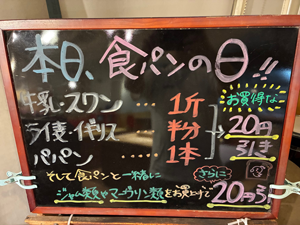 本日、食パンの日!!
牛乳・スワン ‥‥ 1斤
ライ麦・イギリス ‥‥ 半分
パパン ‥‥ 1本
お買得な
20円
引き
そして食パンと一緒に さらに
ジャム類やマーガリン類をお買上げで 20円引